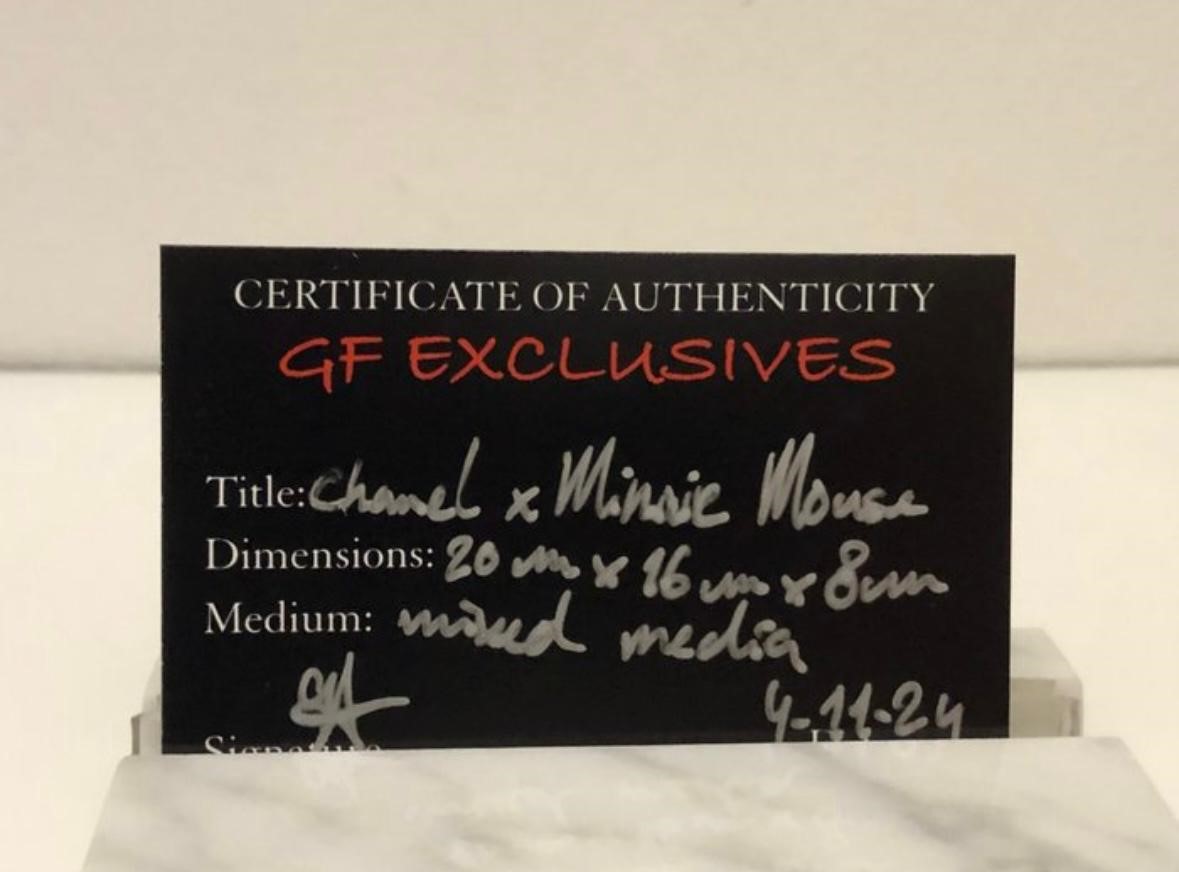 CERTIFICATE OF AUTHENTICITY
GF EXCLUSIVES
Title: Chanel x Minnie Mouse
Dimensions: 20 cm x 16 cm x 8 cm
Medium: mixed media
4-11-24
Signature